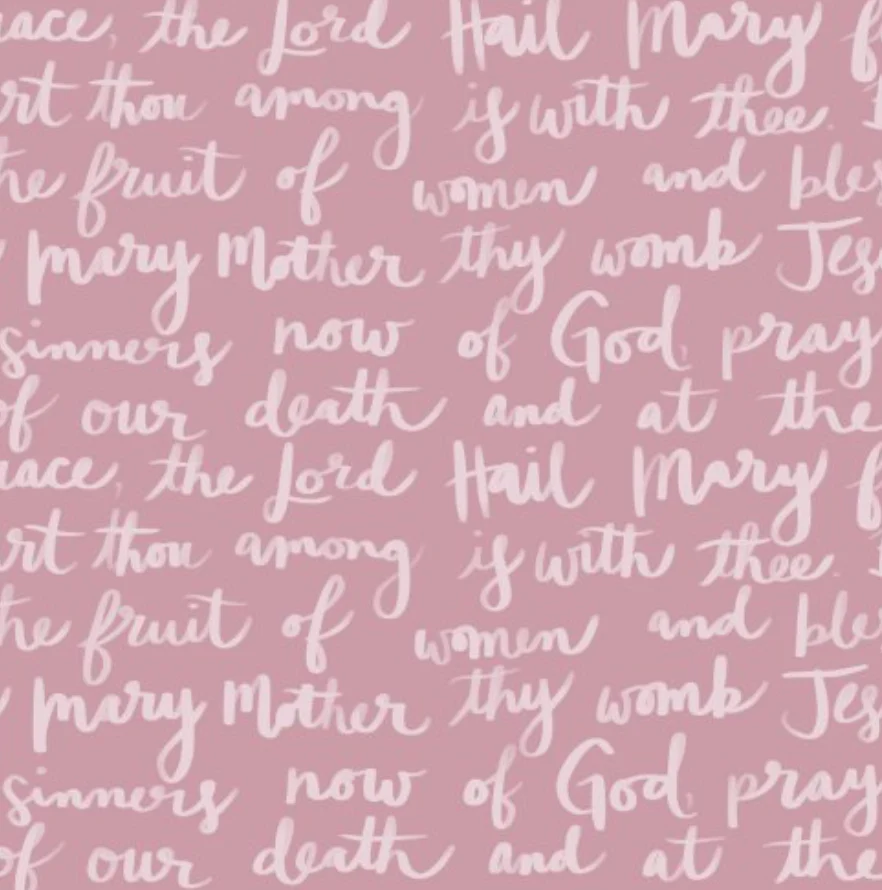 ace, the Lord Hail Mary f
rt thou among is with thee.
he fruit of women and bles
Mary Mother thy womb Jes
sinners now of God, pray
of our death and at the
ace, the Lord Hail Mary f
rt thou among is with thee.
he fruit of women and bles
Mary Mother thy womb Jes
sinners now of God, pray
of our death and at the